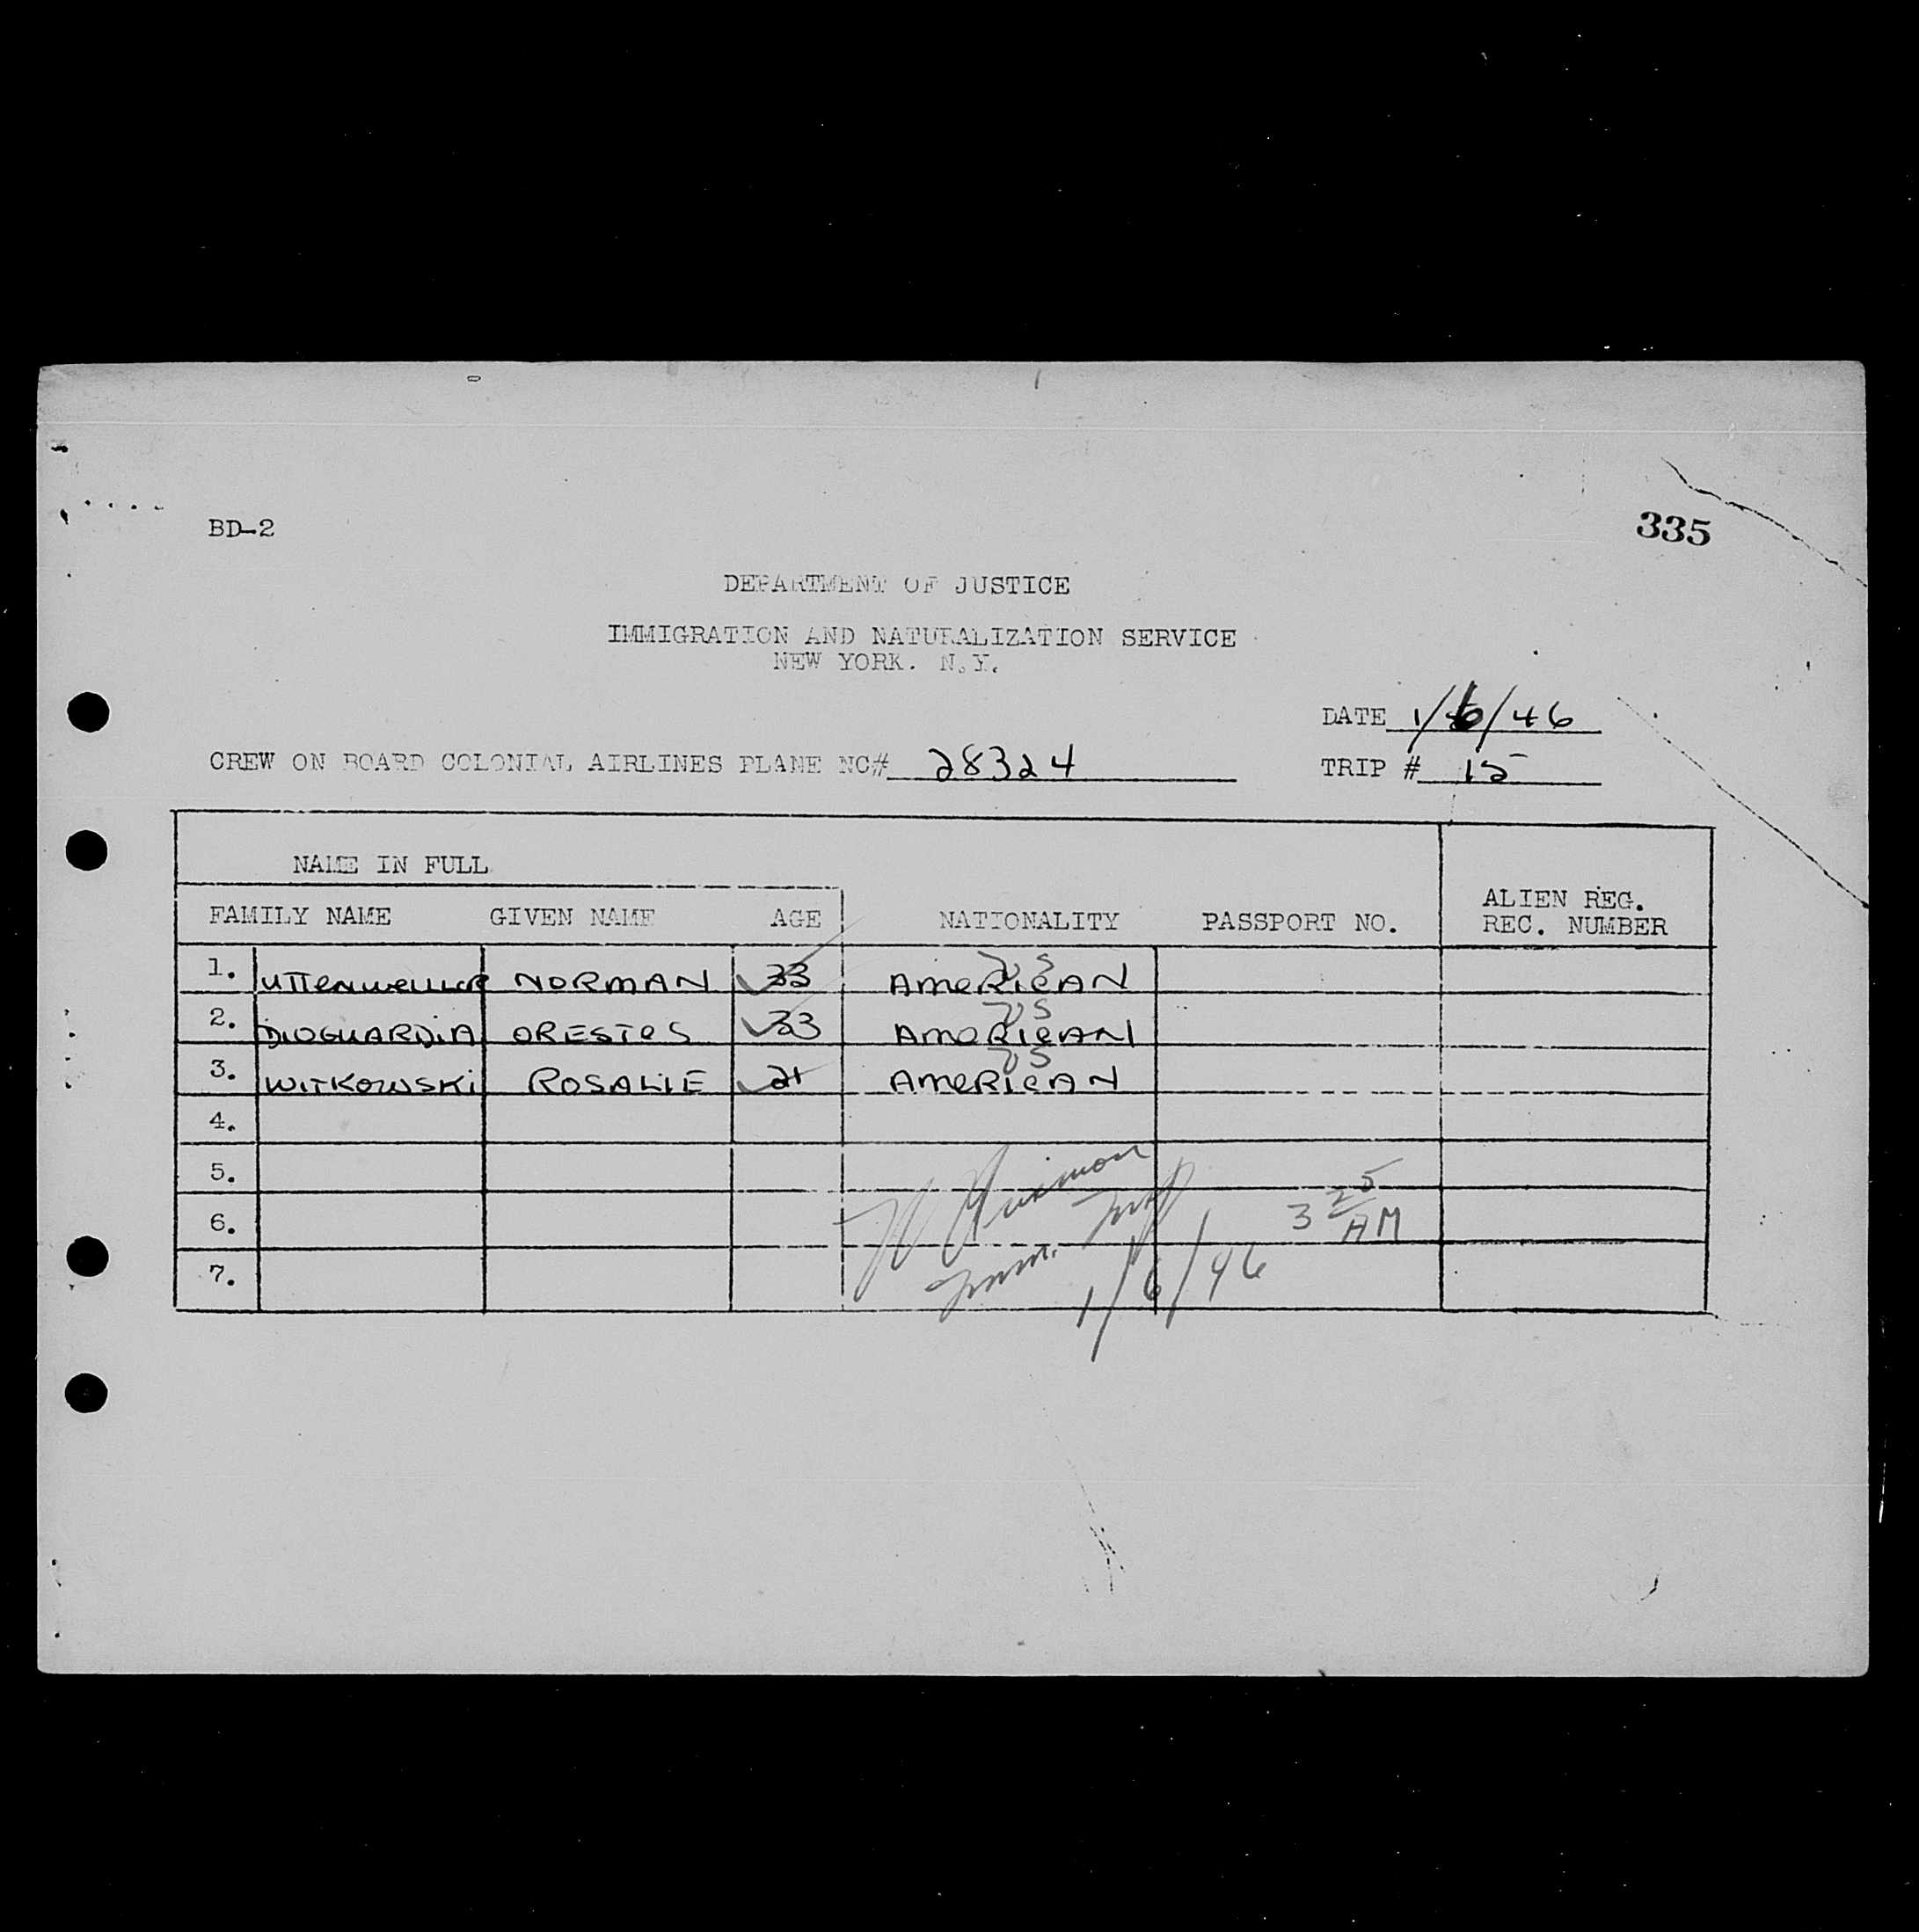 BD-2
335
DEPARTMENT OF JUSTICE
IMMIGRATION AND NATURALIZATION SERVICE
NEW YORK. N.Y.
DATE 1/6/46
CREW ON BOARD COLONIAL AIRLINES PLANE NC# 28324
TRIP # 15
NAME IN FULL
FAMILY NAME GIVEN NAME AGE NATIONALITY PASSPORT NO. ALIEN REG. REC. NUMBER
US
1. NORMAN 33 AMERICAN
US
2. DIOGUARDIA ORESTES 33 AMERICAN
US
3. WITKOWSKI ROSALIE 21 AMERICAN
4.
5.
6.
7.
Imm. Insp
3 25 AM
1/6/46